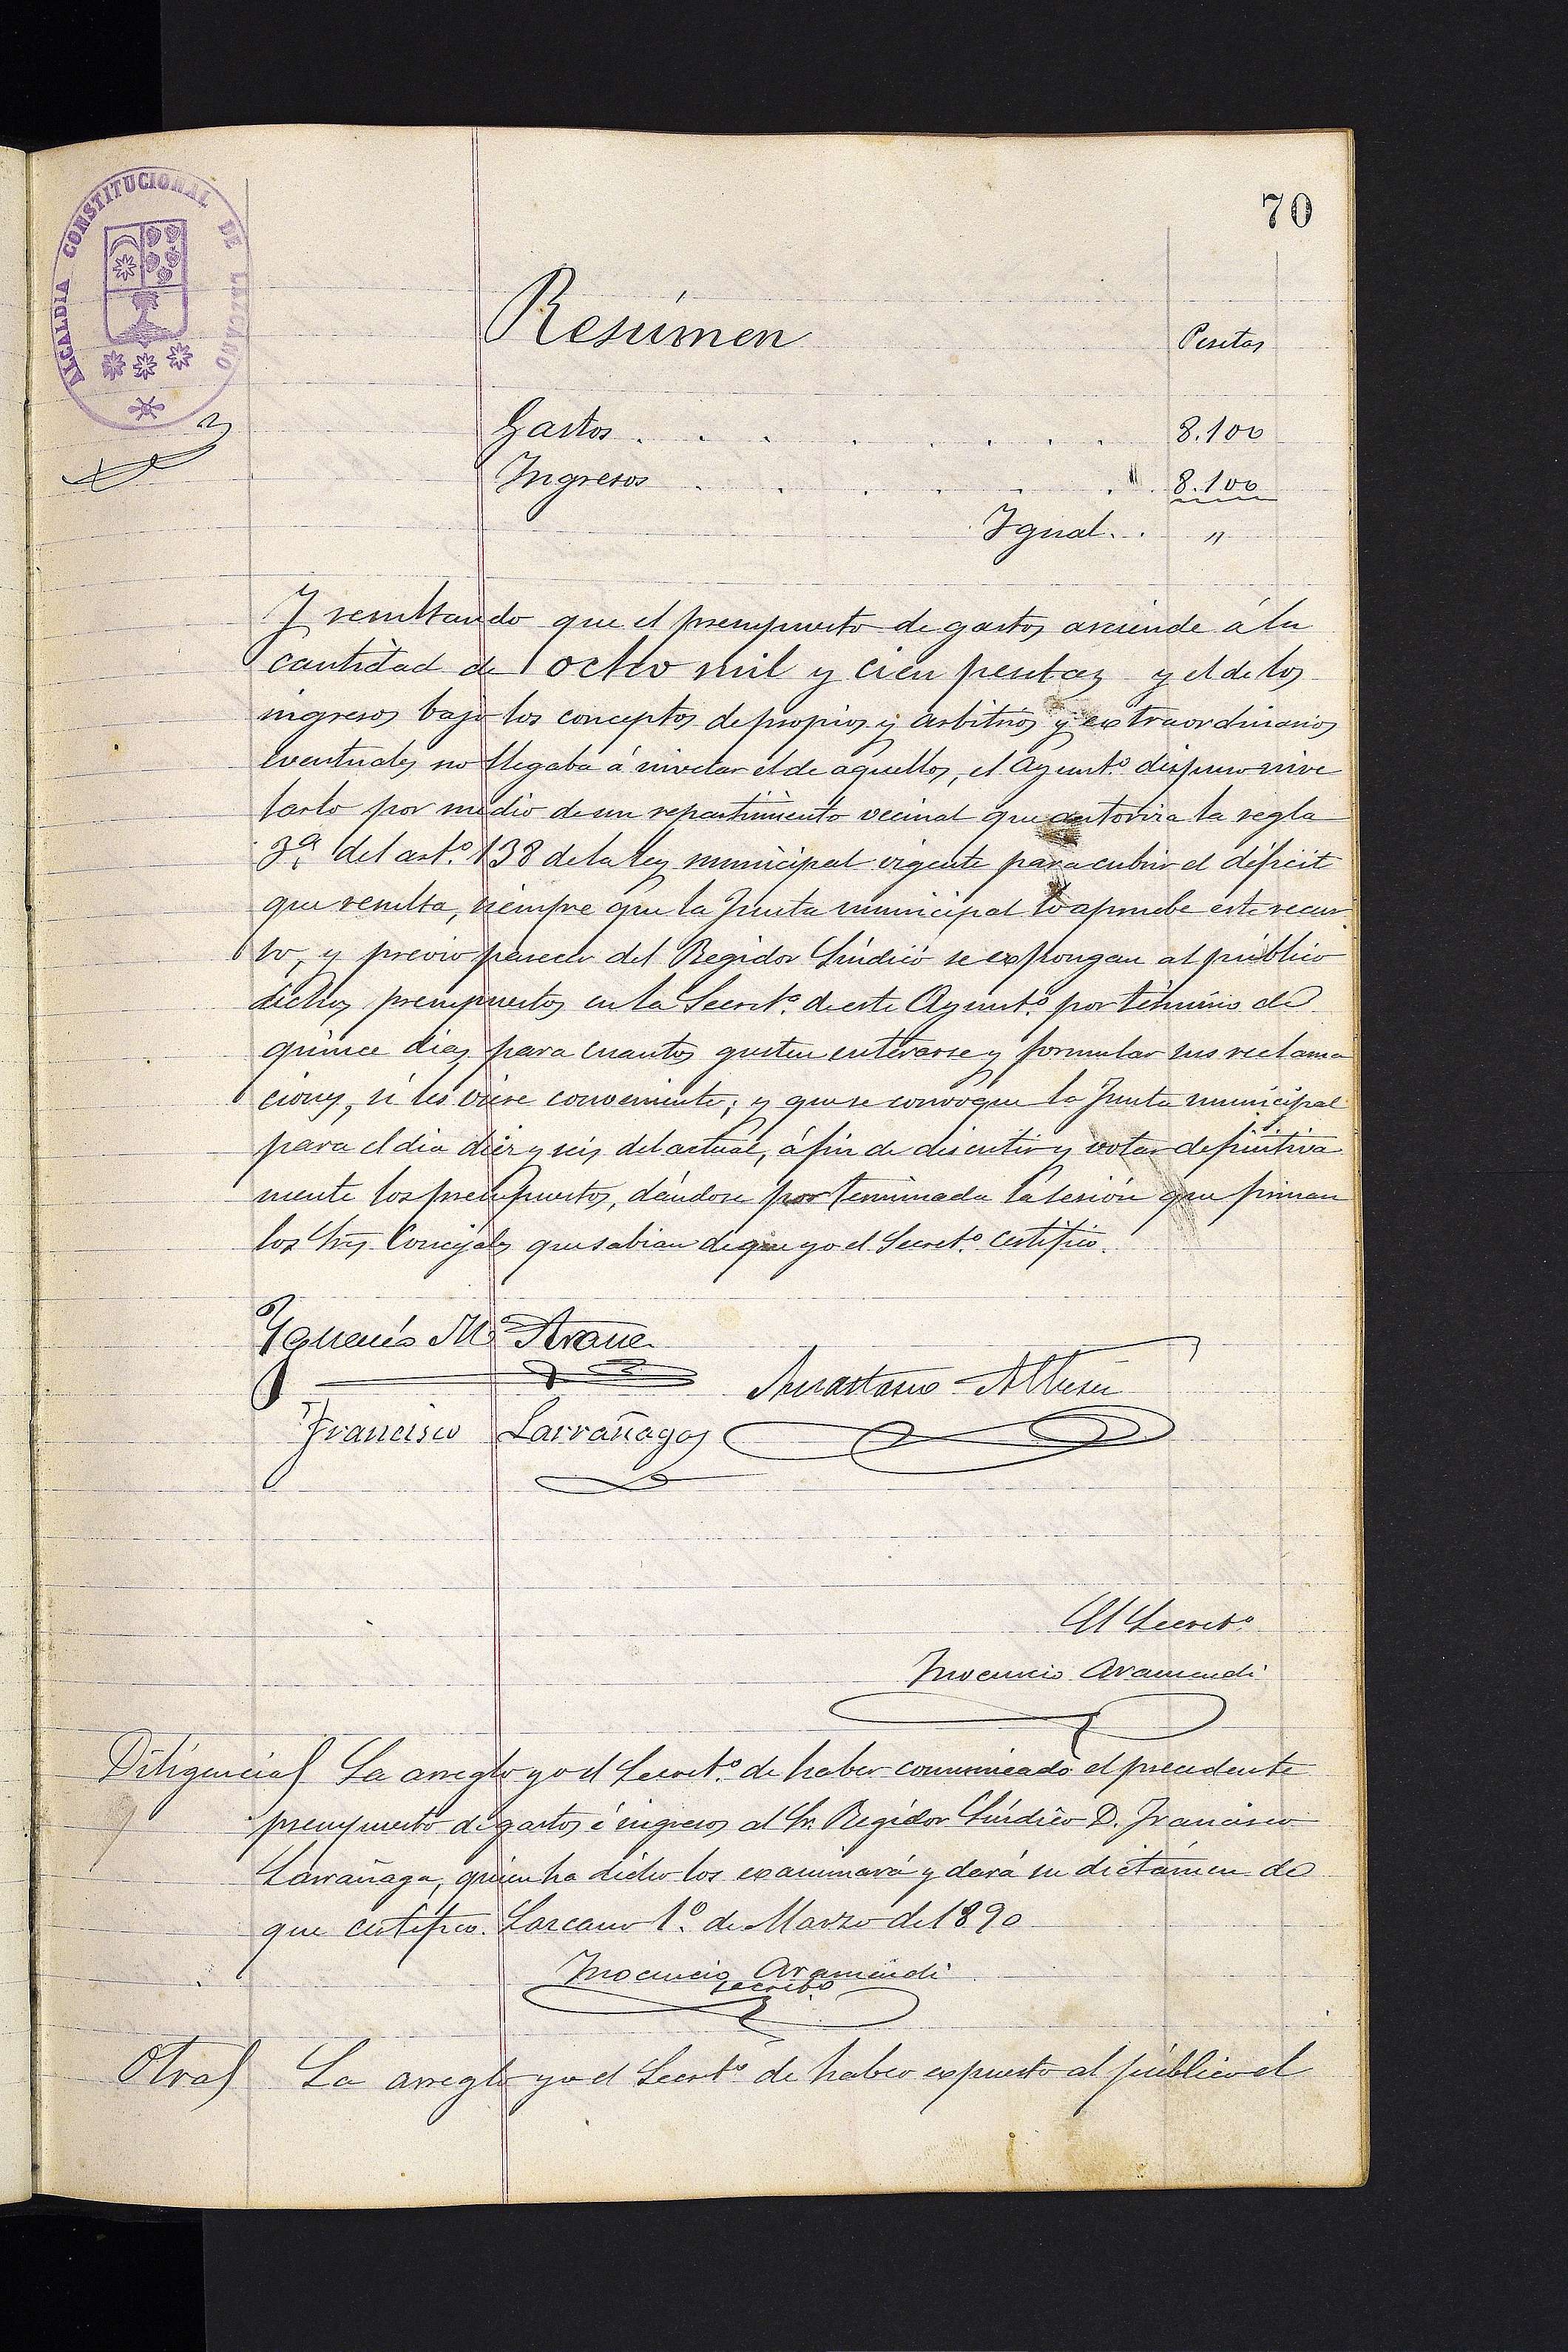 70
ALCALDIA CONSTITUCIONAL DE LAZCANO
Resúmen
Pesetas
Gastos . . . . . . . . 8.100
Ingresos . . . . . . . 8.100
Igual . . "
Y resultando que el presupuesto de gastos asciende á la
cantidad de ocho mil y cien pesetas y el de los
ingresos bajo los conceptos de propios y arbitrios y extraordinarios
eventuales no llegaba á nivelar el de aquellos, el Ayunt.º dispuso nive
larlo por medio de un repartimiento vecinal que autoriza la regla
3ª del art.º 138 de la ley municipal vigente para cubrir el déficit
que resulta, siempre que la Junta municipal lo apruebe este recur
so, y previo parecer del Regidor Síndico se expongan al público
dichos presupuestos en la Secret.ª de este Ayunt.º por término de
quince dias para cuantos gusten enterarse y formular sus reclama
ciones, si les viere conveniente; y que se convoque la Junta municipal
para el dia diez y seis del actual, á fin de discutir y votar definitiva
mente los presupuestos, dándose por terminada la sesión que firman
los Srs. Concejales que sabian de que yo el Secret.º certifico.
Ygnacio M. Arana
Anastasio Albisu
Francisco Larrañaga
El Secret.º
Inocencio Aramendi
Diligencia) La arreglo yo el Secret.º de haber comunicado el precedente
presupuesto de gastos é ingresos al Sr. Regidor Síndico D. Francisco
Larrañaga, quien ha dicho los examinará y dará su dictámen de
que certifico. Lazcano 1.º de Marzo de 1890
Inocencio Aramendi
secret.º
Otra) La arreglo yo el Secret.º de haber expuesto al público el